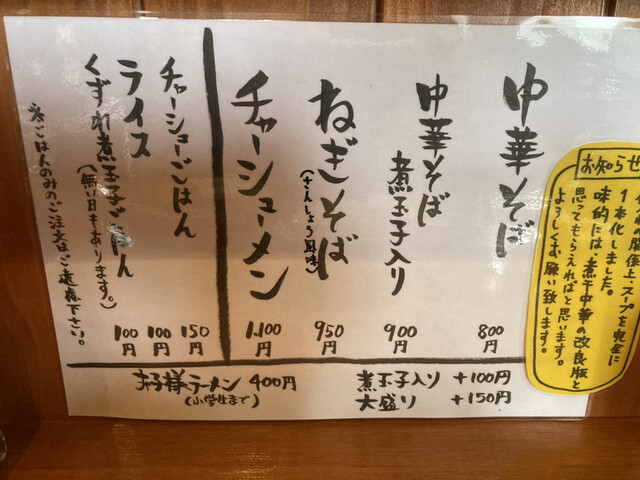 中華そば 800円
中華そば煮玉子入り 900円
ねぎそば(さんしょう風味) 950円
チャーシューメン 1,100円
チャーシューごはん 150円
ライス 100円
くずれ煮玉子ごはん(無い日もあります。) 100円
ごはんのみのご注文はご遠慮下さい。
煮玉子入り +100円
大盛り +150円
お子様ラーメン 400円
(小学生まで)
お知らせ
の関係上、スープを完全に
1本化しました。
味的には、煮干中華の改良版と
思ってもらえればと思います。
よろしくお願い致します。